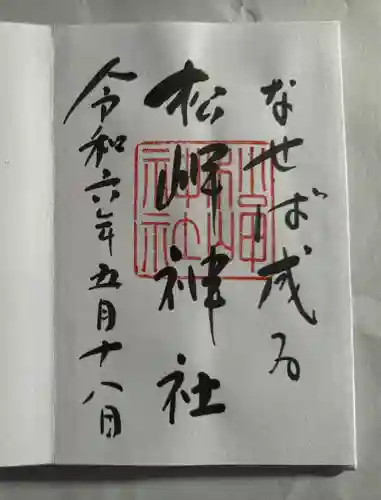 なせば成る
松岬神社
令和六年五月十八日
松岬神社